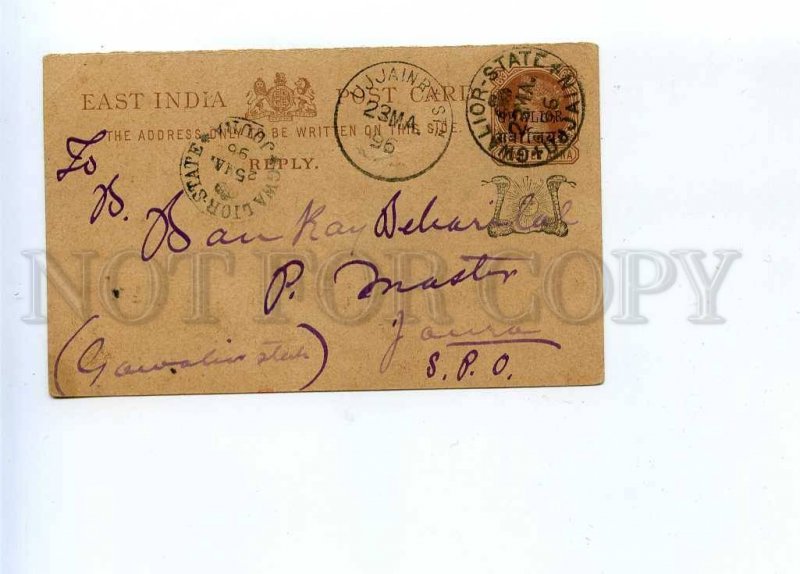 EAST INDIA POST CARD
THE ADDRESS ONLY TO BE WRITTEN ON THIS SIDE.
REPLY.
UJJAIN R.S.
23 MA
96
GWALIOR-STATE
GWALIOR
ग्वालियर
GWALIOR-STATE
25 MA
96
To
B. Ban Kay Behari Lal
P. Master
Jaura
(Gawalior state)
S. P. O.
NOT FOR COPY